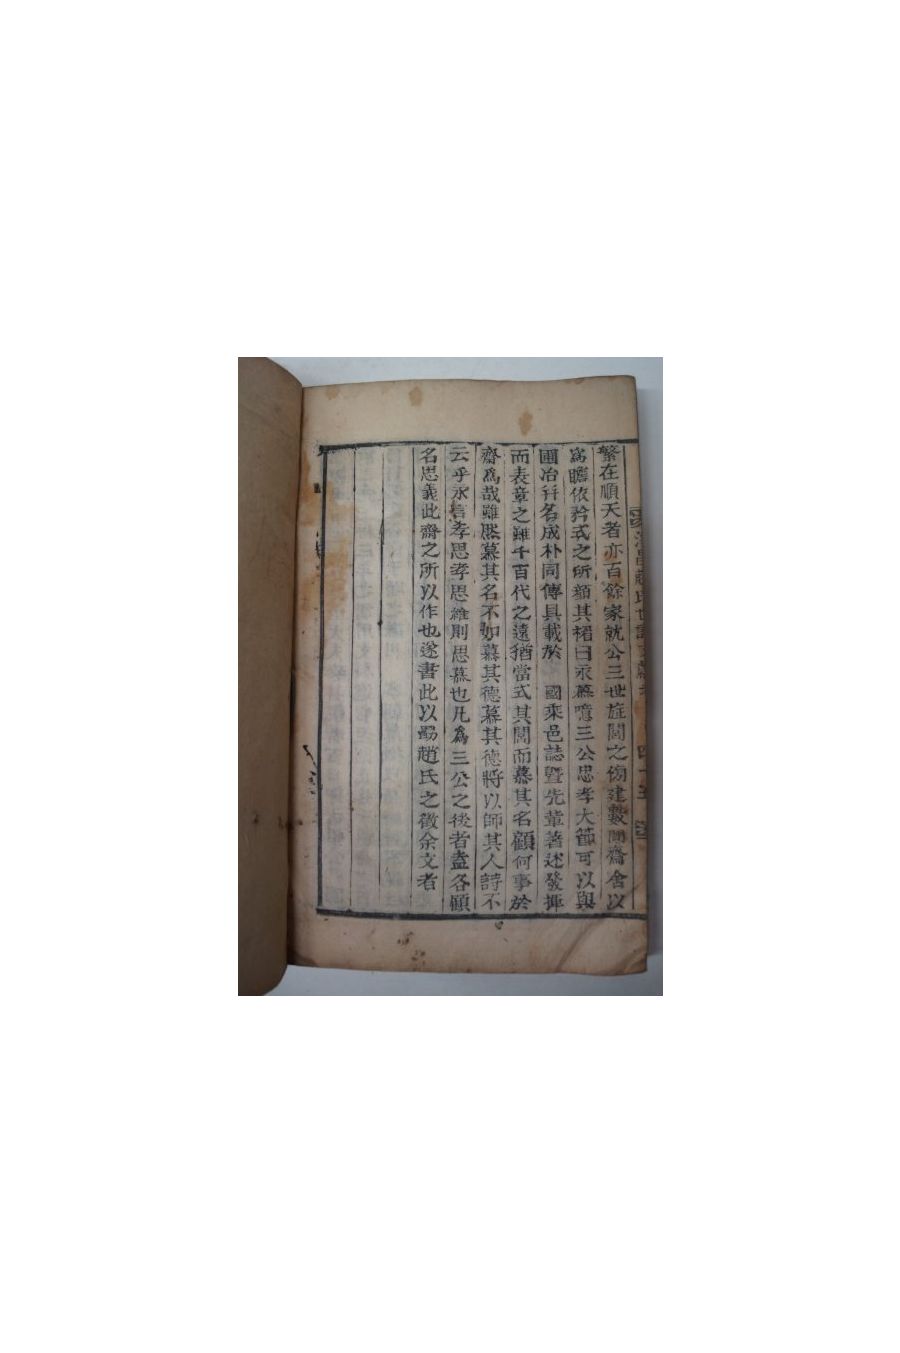 繁在順天者亦百餘家就公三世旌閭之傍建數間齋舍以
寓瞻依矜式之所顔其楣曰永慕噫三公忠孝大節可以與
圃冶幷名成朴同傳具載於 國乘邑誌曁先輩著述發揮
而表章之雖千百代之遠猶當式其閭而慕其名顧何事於
齋爲哉雖然慕其名不如慕其德慕其德將以師其人詩不
云乎永言孝思孝思維則思慕也凡爲三公之後者盍各顧
名思義此齋之所以作也遂書此以勗趙氏之徵余文者